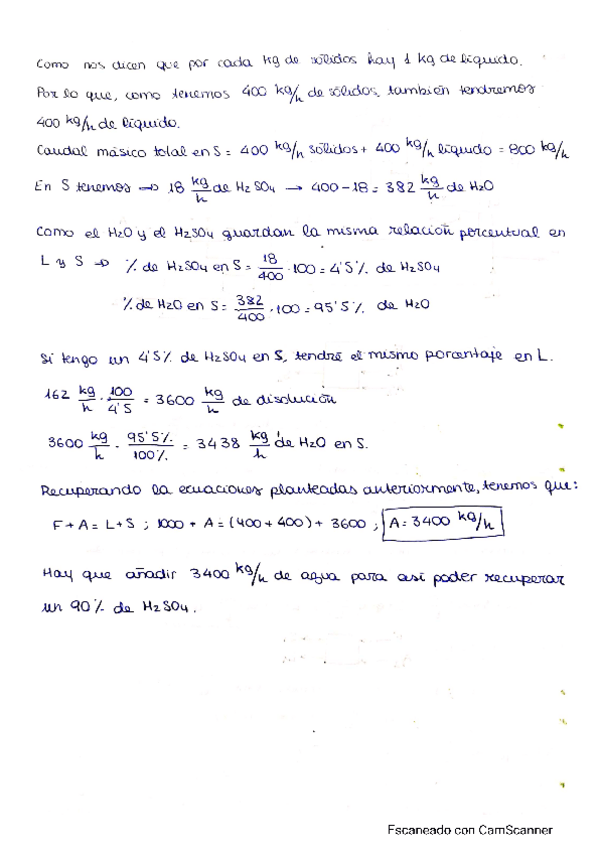 Como nos dicen que por cada kg de sólidos hay 1 kg de líquido.
Por lo que, como tenemos 400 kg/h de sólidos, también tendremos
400 kg/h de líquido.
Caudal másico total en S = 400 kg/h sólidos + 400 kg/h líquido = 800 kg/h
En S tenemos → 18 kg/h de H2SO4 → 400 - 18 = 382 kg/h de H2O
Como el H2O y el H2SO4 guardan la misma relación porcentual en
L y S → % de H2SO4 en S = 18/400 · 100 = 4'5% de H2SO4
% de H2O en S = 382/400 · 100 = 95'5% de H2O
Si tengo un 4'5% de H2SO4 en S, tendré el mismo porcentaje en L.
162 kg/h · 100/4'5 = 3600 kg/h de disolución
3600 kg/h · 95'5%/100% = 3438 kg/h de H2O en S.
Recuperando la ecuaciones planteadas anteriormente, tenemos que:
F + A = L + S ; 1000 + A = (400 + 400) + 3600 ; A = 3400 kg/h
Hay que añadir 3400 kg/h de agua para así poder recuperar
un 90% de H2SO4.
Escaneado con CamScanner